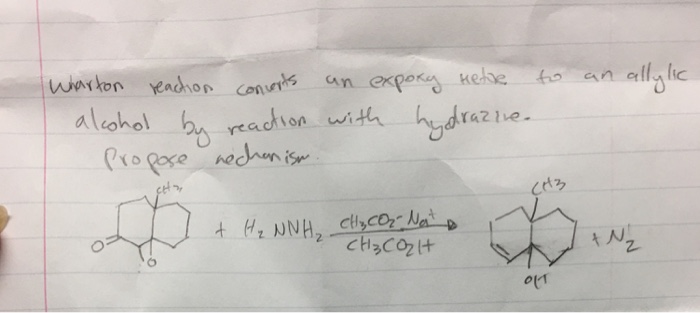 Wharton reaction converts an expoxy ketoe to an allylic
alcohol by reaction with hydrazine.
Propose mechanism.
CH3 CH3
+ H2NNH2 CH3CO2-Na+ + N2
O CH3CO2H
O OH